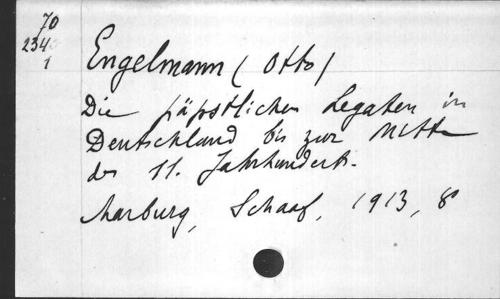 70
2340
1
Engelmann (Otto)
Die päpstlichen Legaten in
Deutschland bis zur Mitte
des 11. Jahrhunderts.
Marburg, Schaaf, 1913, 8°